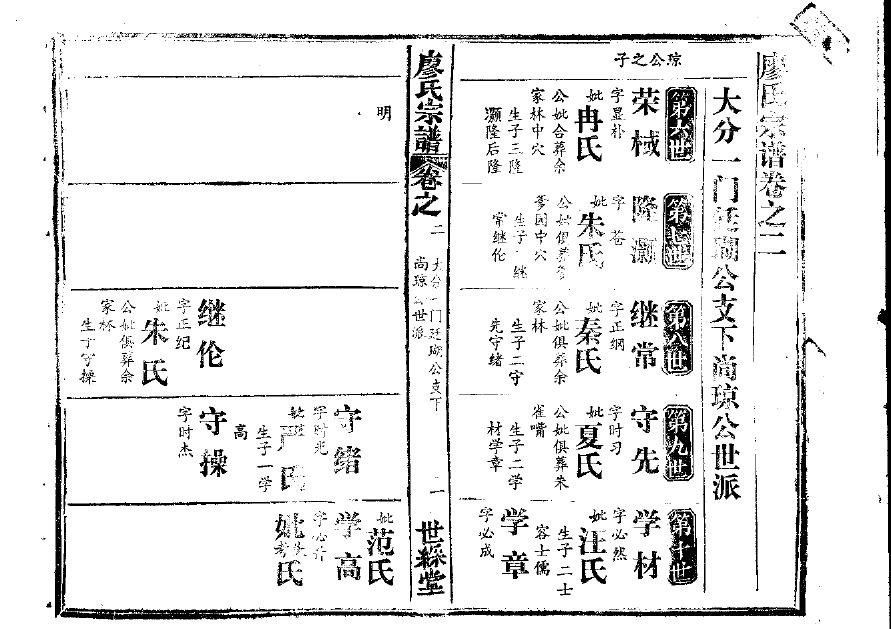 廖氏宗谱卷之二
大分一门廷瑚公支下尚琼公世派
琼公之子
第六世
荣棫
字显朴
妣冉氏
公妣合葬余
家林中穴
生子三隆
灏隆后隆
第七世
隆灏
字苍
妣朱氏
公妣俱葬
园中穴
生子继
常继伦
第八世
继常
字正纲
妣秦氏
公妣俱葬余
家林
生子二守
先守绪
第九世
守先
字时习
妣夏氏
公妣俱葬朱
雀嘴
生子二学
材学章
第十世
学材
字必然
妣汪氏
生子二士
容士儒
学章
字必成
廖氏宗谱
卷之
二
大分一门廷瑚公支下
尚琼公世派
一
世䌽堂
明
继伦
字正纪
妣朱氏
公妣俱葬余
家林
生子守操
守绪
字时兆
严氏
生子一学
高
守操
字时杰
学高
字必升
妣范氏
氏